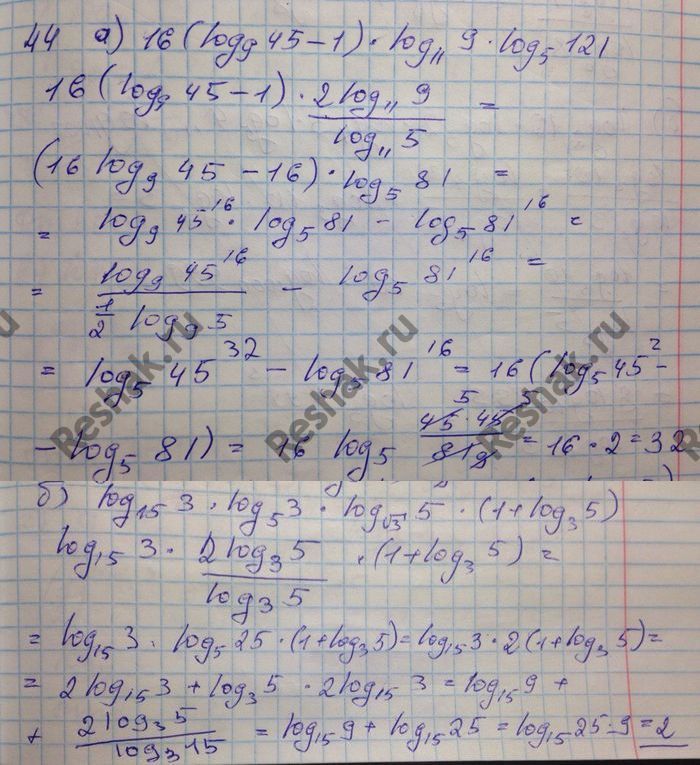 44 а) 16(log₉ 45 − 1) · log₁₁ 9 · log₅ 121
16(log₉ 45 − 1) · \frac{2 log₁₁ 9}{log₁₁ 5} =
(16 log₉ 45 − 16) · log₅ 81 =
= log₉ 45¹⁶ · log₅ 81 − log₅ 81¹⁶ =
= \frac{log₉ 45¹⁶}{\frac{1}{2} log₉ 5} − log₅ 81¹⁶ =
= log₅ 45³² − log₅ 81¹⁶ = 16(log₅ 45² −
− log₅ 81) = 16 log₅ \frac{45 · 45}{81} = 16 · 2 = 32
б) log₁₅ 3 · log₅ 3 · log_{√3} 5 · (1 + log₃ 5)
log₁₅ 3 · \frac{2 log₃ 5}{log₃ 5} · (1 + log₃ 5) =
= log₁₅ 3 · log₅ 25 · (1 + log₃ 5) = log₁₅ 3 · 2(1 + log₃ 5) =
= 2 log₁₅ 3 + log₃ 5 · 2 log₁₅ 3 = log₁₅ 9 +
+ \frac{2 log₃ 5}{log₃ 15} = log₁₅ 9 + log₁₅ 25 = log₁₅ 25 · 9 = 2
Reshak.ru
Reshak.ru
Reshak.ru